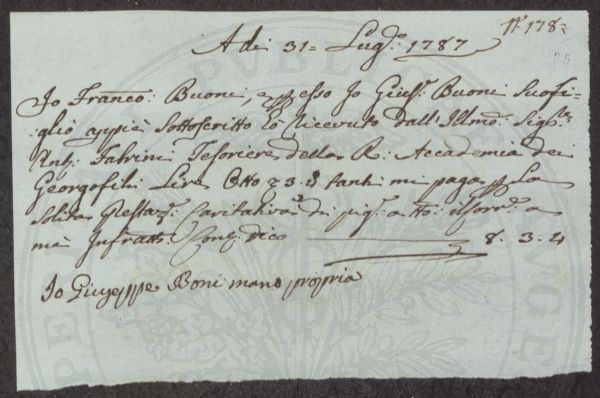 N° 178
A dì 31= Lug.° 1787
Io Franco: Buoni, e p esso Io Giuse. Buoni Suo fi-
glio appiè Sottoscritto ho ricevuto dall'Illmo: Sig.re
Ant.° Fabrini Tesoriere della R: Accademia dei
Georgofili Lire Otto 3.4 tanti mi paga p la
Solita Caritativa di a
me Infratto. Cont. dico 8. 3. 4
Io Giuseppe Boni mano propria